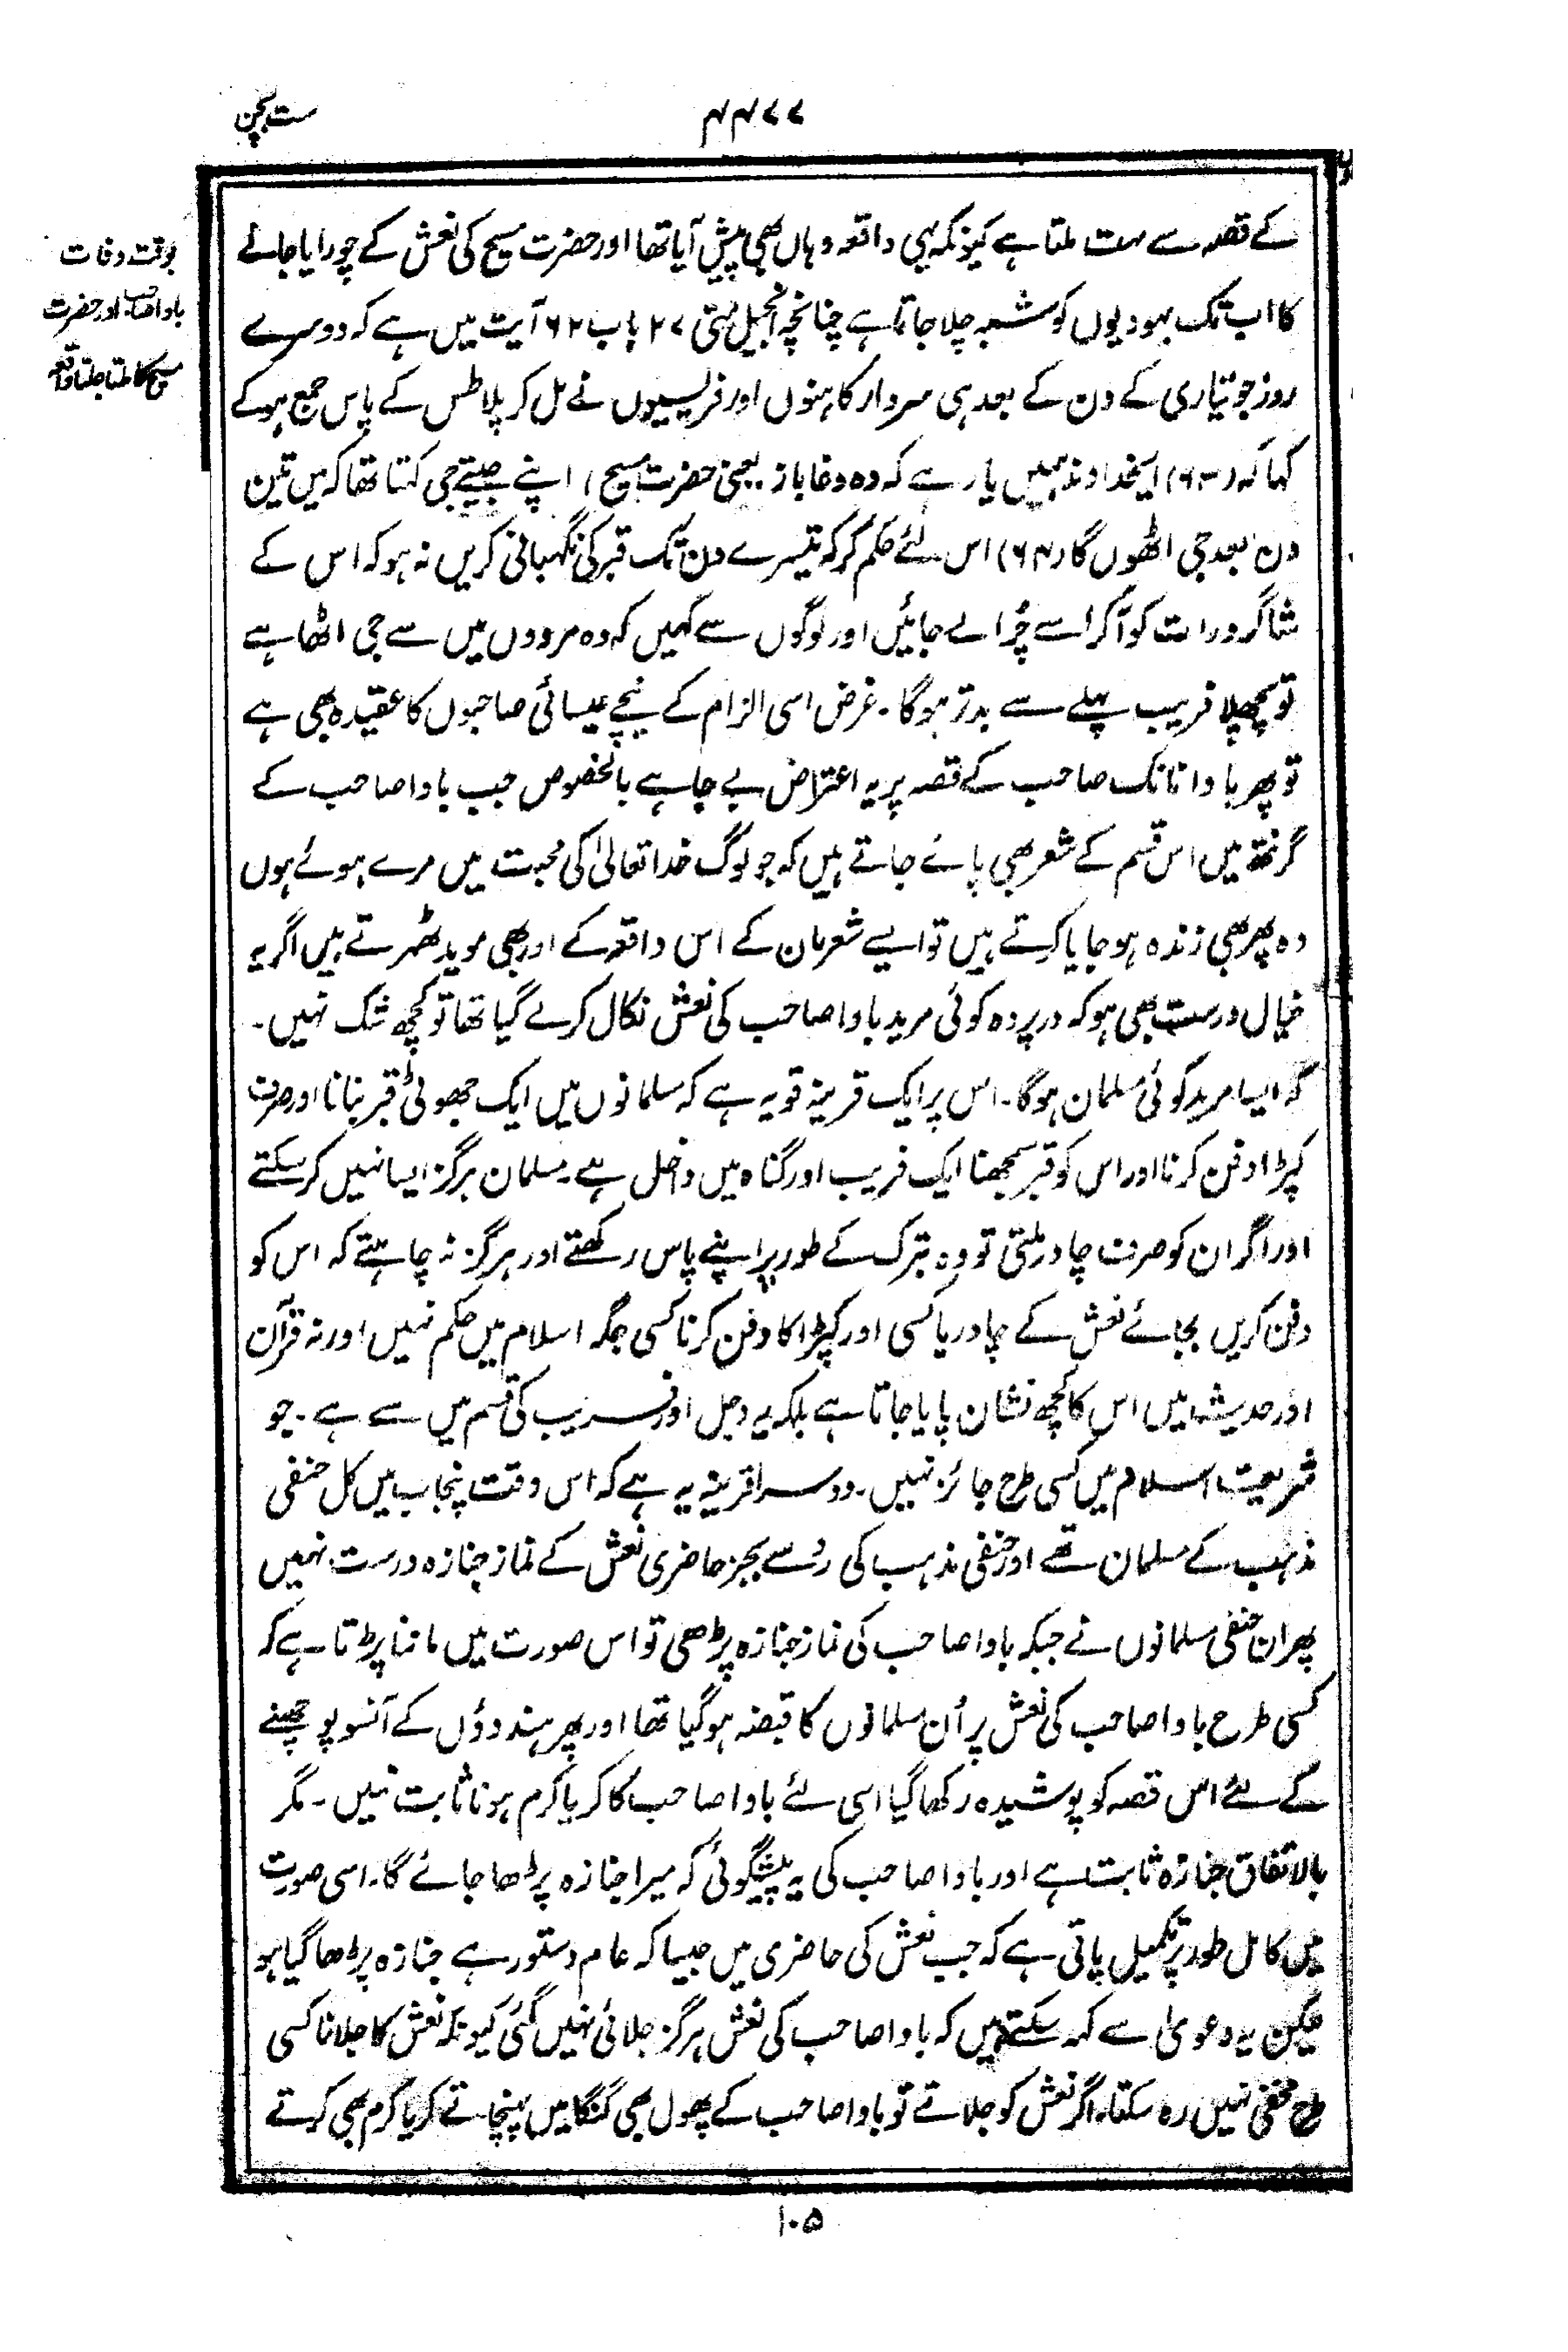 ست بچن
کے قصہ سے بہت ملتا ہے کیونکہ یہی واقعہ وہاں بھی پیش آیا تھا اور حضرت مسیح کی نعش کے چورایا جانے
کا اب تک یہودیوں کو شبہ چلا جاتا ہے چنانچہ انجیل متی ۲۷ باب ۶۲ آیت میں ہے کہ دوسرے
روز جو تیاری کے دن کے بعد ہی سردار کاہنوں اور فریسیوں نے مل کر پلاطس کے پاس جمع ہو کے
کہا کہ (۶۳) ایخداوند ہمیں یاد ہے کہ وہ دغاباز (یعنی حضرت مسیح) اپنے جیتے جی کہتا تھا کہ میں تین
دن بعد جی اٹھوں گا (۶۴) اس لئے حکم کر کہ تیسرے دن تک قبر کی نگہبانی کریں نہ ہو کہ اس کے
شاگرد رات کو آکر اسے چُرا لے جائیں اور لوگوں سے کہیں کہ وہ مردوں میں سے جی اٹھا ہے
تو پچھلا فریب پہلے سے بدتر ہوگا۔ غرض اسی الزام کے نیچے عیسائی صاحبوں کا عقیدہ بھی ہے
تو پھر باوا نانک صاحب کے قصہ پر یہ اعتراض بے جا ہے بالخصوص جب باوا صاحب کے
گرنتھ میں اس قسم کے شعر بھی پائے جاتے ہیں کہ جو لوگ خدا تعالیٰ کی محبت میں مرے ہوئے ہوں
وہ پھر بھی زندہ ہو جایا کرتے ہیں تو ایسے شعر ان کے اس واقعہ کے اور بھی موید ٹھہرتے ہیں اگر یہ
خیال درست بھی ہو کہ درپردہ کوئی مرید باوا صاحب کی نعش نکال کر لے گیا تھا تو کچھ شک نہیں۔
کہ ایسا مرید کوئی مسلمان ہوگا۔ اس پر ایک قرینہ قویہ ہے کہ مسلمانوں میں ایک جھوٹی قبر بنانا اور صرف
کپڑا دفن کرنا اور اس کو قبر سمجھنا ایک فریب اور گناہ میں داخل ہے۔ مسلمان ہرگز ایسا نہیں کر سکتے
اور اگر ان کو صرف چادر ملتی تو وہ تبرک کے طور پر اپنے پاس رکھتے اور ہرگز نہ چاہتے کہ اس کو
دفن کریں بجائے نعش کے چادر یا کسی اور کپڑا کا دفن کرنا کسی جگہ اسلام میں حکم نہیں اور نہ قرآن
اور حدیث میں اس کا کچھ نشان پایا جاتا ہے بلکہ یہ دجل اور فریب کی قسم میں سے ہے۔ جو
شریعت اسلام میں کسی طرح جائز نہیں۔ دوسرا قرینہ یہ ہے کہ اس وقت پنجاب میں کل حنفی
مذہب کے مسلمان تھے اور حنفی مذہب کی رُو سے بجز حاضری نعش کے نماز جنازہ درست نہیں
پھر ان حنفی مسلمانوں نے جبکہ باوا صاحب کی نماز جنازہ پڑھی تو اس صورت میں ماننا پڑتا ہے کہ
کسی طرح باوا صاحب کی نعش پر اُن مسلمانوں کا قبضہ ہو گیا تھا اور پھر ہندوؤں کے آنسو پوچھنے
کے لئے اس قصہ کو پوشیدہ رکھا گیا اسی لئے باوا صاحب کا کریا کرم ہونا ثابت نہیں۔ مگر
بالاتفاق جنازہ ثابت ہے اور باوا صاحب کی یہ پیشگوئی کہ میرا جنازہ پڑھا جائے گا۔ اسی صورت
میں کامل طور پر تکمیل پاتی ہے کہ جب نعش کی حاضری میں جیسا کہ عام دستور ہے جنازہ پڑھا گیا ہو
لیکن یہ دعویٰ سے کہہ سکتے ہیں کہ باوا صاحب کی نعش ہرگز جلائی نہیں گئی کیونکہ نعش کا جلانا کسی
طرح مخفی نہیں رہ سکتا۔ اگر نعش کو جلاتے تو باوا صاحب کے پھول بھی گنگا میں پہنچاتے کریا کرم بھی کرتے
بوقت وفات
باوا صاحب اور حضرت
مسیح کا ملتا جلتا واقعہ
۱۰۵